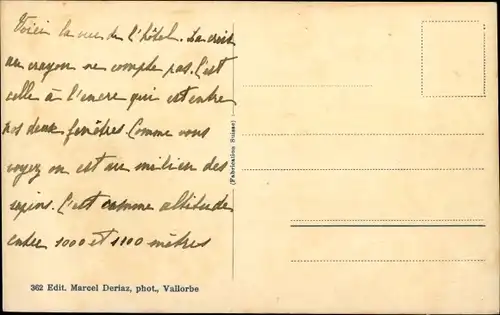 Voici la vue de l'hôtel. La croix
au crayon ne compte pas. C'est
celle à l'encre qui est entre
nos deux fenêtres. Comme vous
voyez on est au milieu des
sapins. C'est comme altitude
entre 1000 et 1100 mètres
(Fabrication Suisse)
362 Edit. Marcel Deriaz, phot., Vallorbe